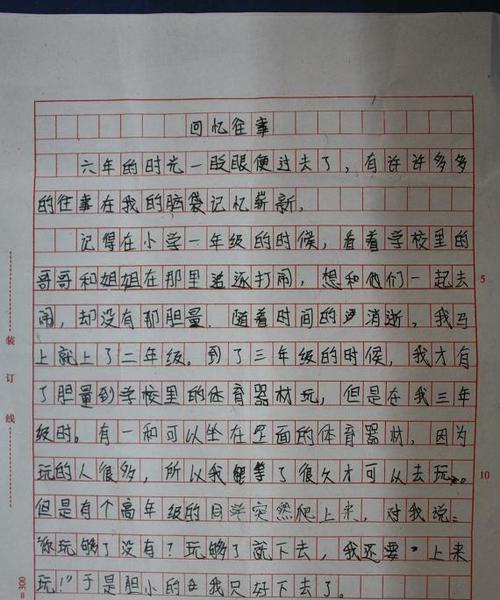 回忆往事
六年的时光一眨眼便过去了，有许许多多
的往事在我的脑袋记忆崭新，
记得在小学一年级的时候，看着学校里的
哥哥和姐姐在那里追逐打闹，想和他们一起去
闹，却没有那胆量．随着时间的消逝，我马
上就上了二年级。到了三年级的时候，我才有
了胆量到学校里的体育器材玩，但是在我三年
级时。有一和可以坐在里面的体育器材，因为
玩的人很多，所以我等了很久才可以去玩。
但是有个高年级的同学突然爬上来，对我说：
"你玩够了没有？玩够了就下去，我还要上来
玩！"于是胆小的我只好下去了。
装
订
线
5
10